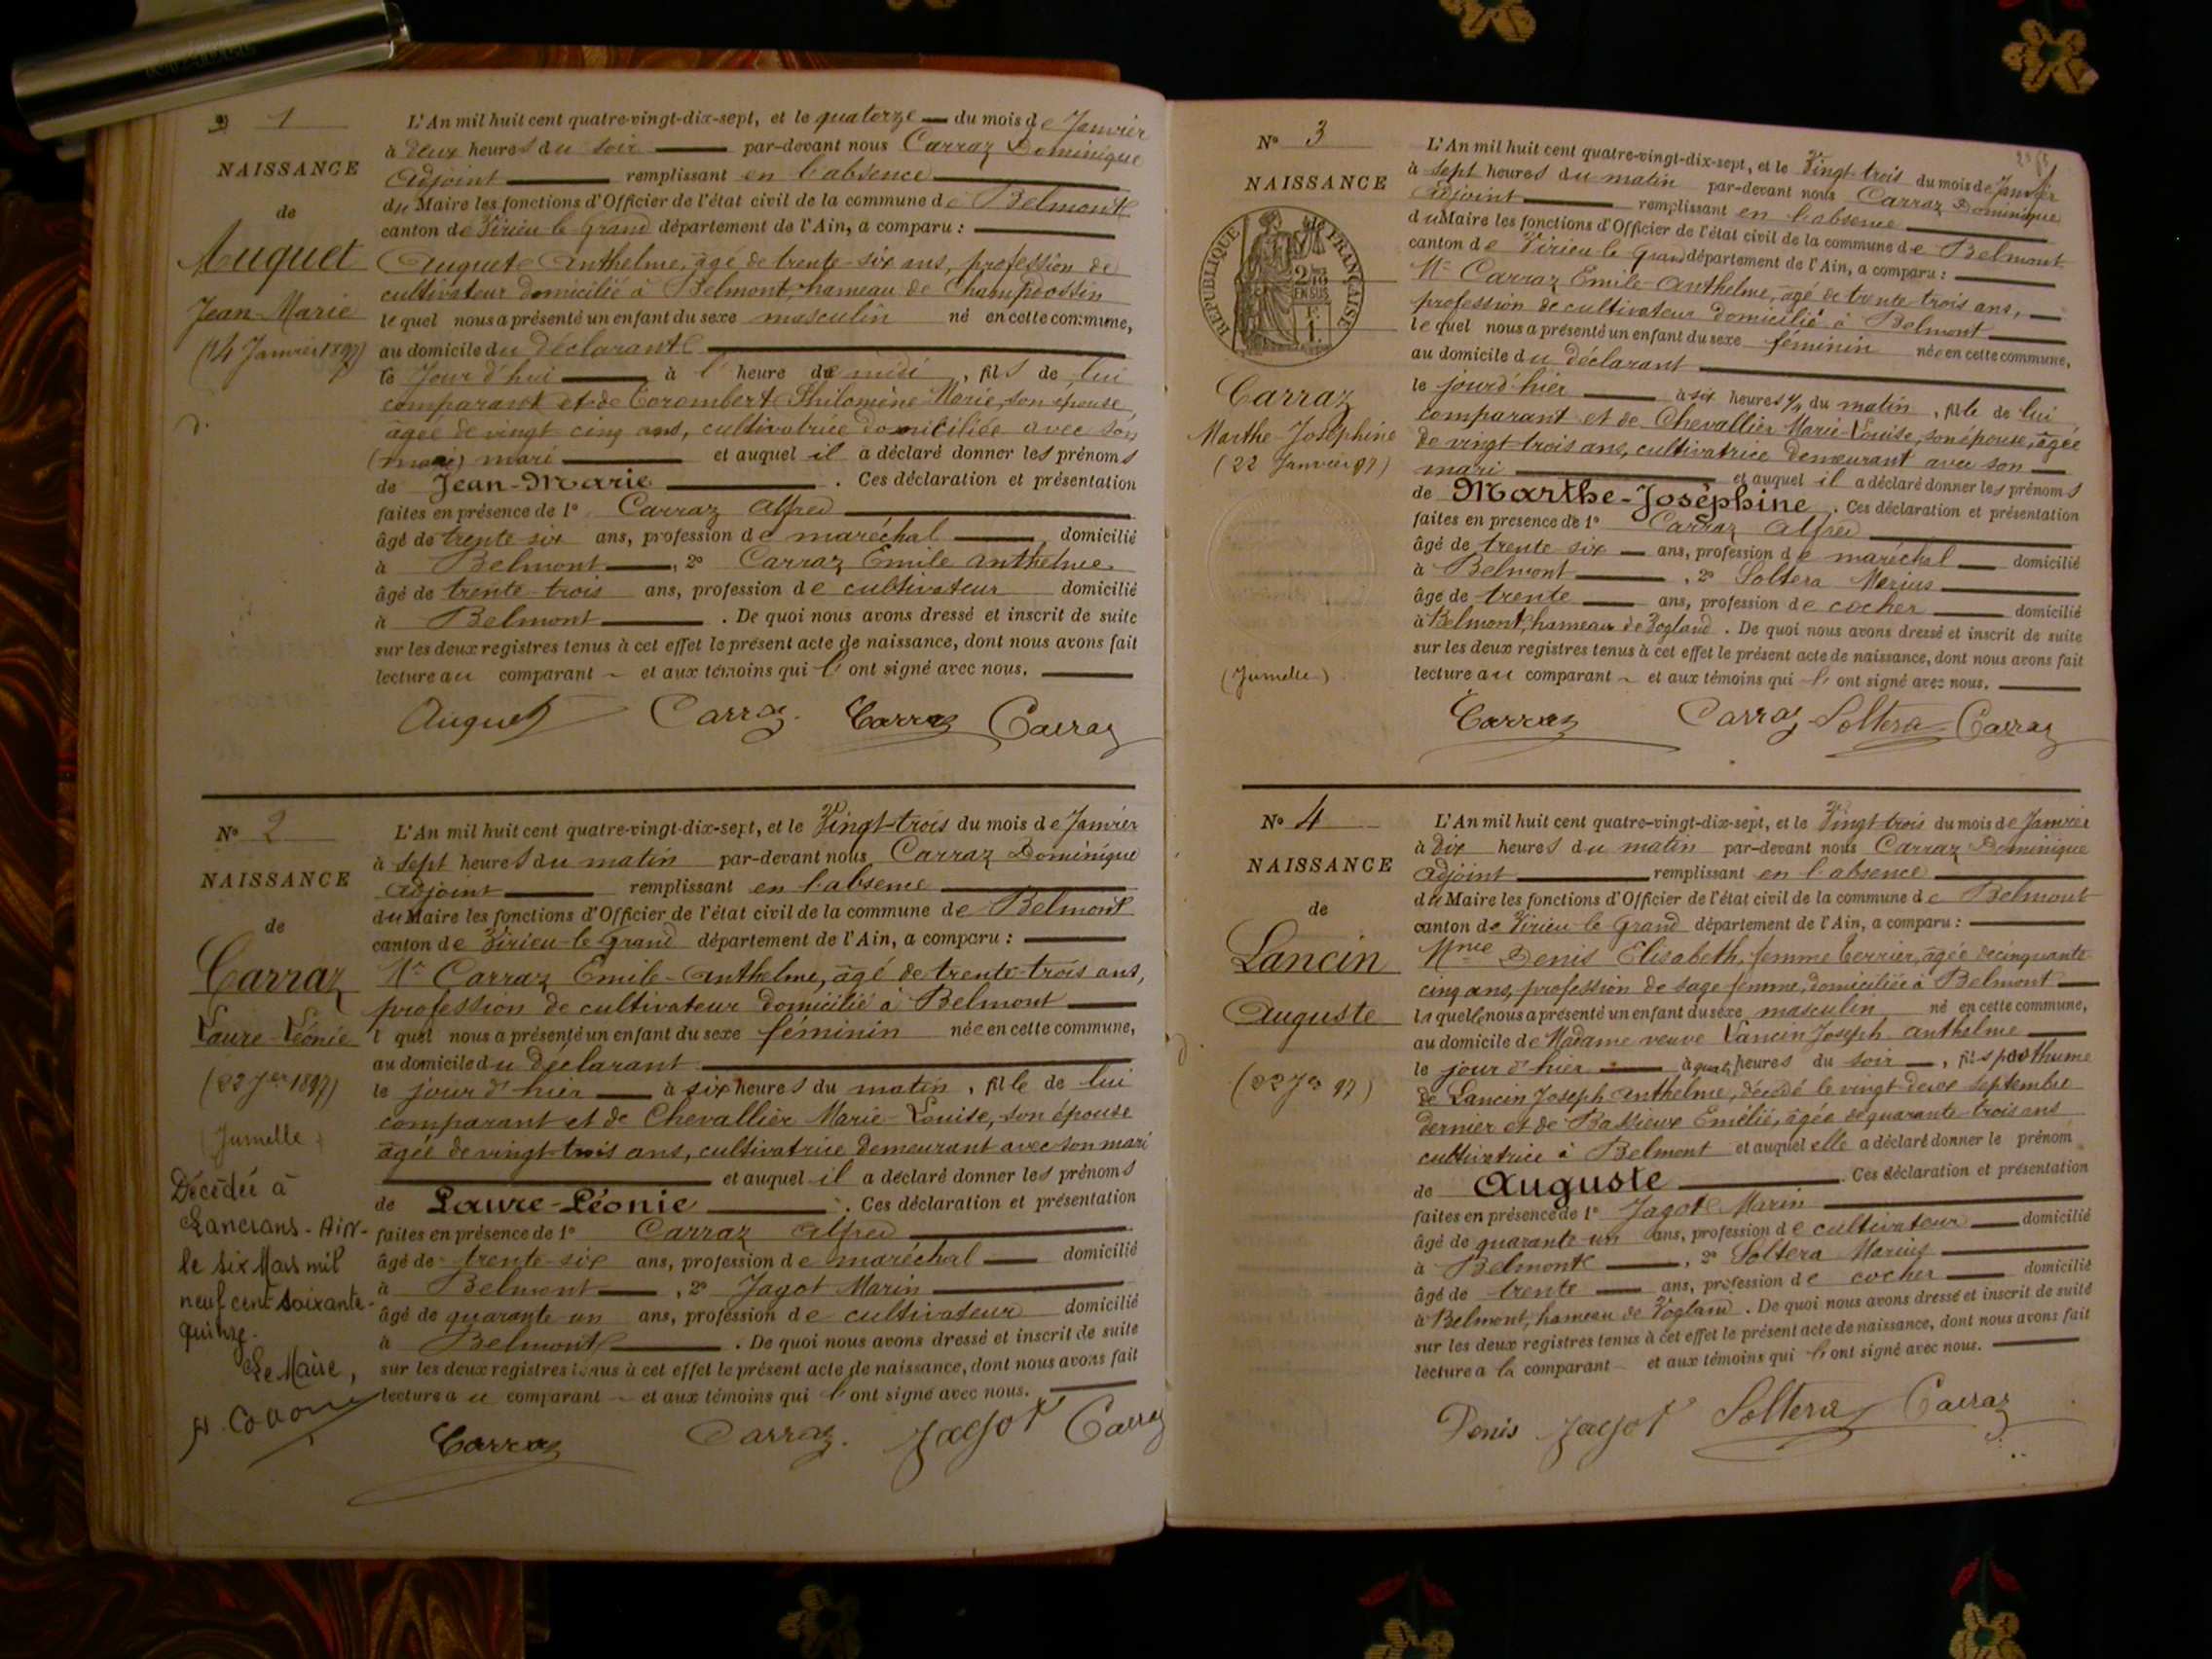 N° 1
NAISSANCE
de
Auguet
Jean-Marie
(14 Janvier 1897)
L'An mil huit cent quatre-vingt-dix-sept, et le quatorze du mois de Janvier
à deux heures du soir par-devant nous Carraz Dominique
adjoint remplissant en l'absence
du Maire les fonctions d'Officier de l'état civil de la commune de Belmont
canton de Virieu le Grand département de l'Ain, a comparu :
Auguet Anthelme, âgé de trente-six ans, profession de
cultivateur domicilié à Belmont, hameau de Champdossin
lequel nous a présenté un enfant du sexe masculin né en cette commune,
au domicile du déclarant
le Jour d'hui à l' heure de midi, fils de lui
comparant et de Corombert Philomène Marie, son épouse,
âgée de vingt cinq ans, cultivatrice domiciliée avec son
(mari) mari et auquel il a déclaré donner les prénoms
de Jean-Marie. Ces déclaration et présentation
faites en présence de 1° Carraz Alfred
âgé de trente six ans, profession de maréchal domicilié
à Belmont, 2° Carraz Emile Anthelme
âgé de trente trois ans, profession de cultivateur domicilié
à Belmont. De quoi nous avons dressé et inscrit de suite
sur les deux registres tenus à cet effet le présent acte de naissance, dont nous avons fait
lecture au comparant et aux témoins qui l'ont signé avec nous.
Auguet Carraz Carraz Carraz
N° 2
NAISSANCE
de
Carraz
Laure-Léonie
(22 Jer 1897)
(Jumelle)
Décédée à
Lancrans - Ain -
le six Mars mil
neuf cent soixante-
quinze.
Le Maire,
L'An mil huit cent quatre-vingt-dix-sept, et le Vingt-trois du mois de Janvier
à sept heures du matin par-devant nous Carraz Dominique
adjoint remplissant en l'absence
du Maire les fonctions d'Officier de l'état civil de la commune de Belmont
canton de Virieu-le-Grand département de l'Ain, a comparu :
Mr Carraz Emile-Anthelme, âgé de trente-trois ans,
profession de cultivateur domicilié à Belmont
l quel nous a présenté un enfant du sexe féminin née en cette commune,
au domicile du déclarant
le jour d'hier à six heures du matin, fille de lui
comparant et de Chevallier Marie-Louise, son épouse
âgée de vingt-trois ans, cultivatrice demeurant avec son mari
et auquel il a déclaré donner les prénoms
de Laure-Léonie. Ces déclaration et présentation
faites en présence de 1° Carraz Alfred
âgé de trente-six ans, profession de maréchal domicilié
à Belmont, 2° Jagot Marin
âgé de quarante un ans, profession de cultivateur domicilié
à Belmont. De quoi nous avons dressé et inscrit de suite
sur les deux registres tenus à cet effet le présent acte de naissance, dont nous avons fait
lecture au comparant et aux témoins qui l'ont signé avec nous.
Carraz Carraz. Jagot Carraz
N° 3
NAISSANCE
RÉPUBLIQUE FRANÇAISE
2/10 EN SUS
Carraz
Marthe-Joséphine
(22 Janvier 97)
(Jumelle)
L'An mil huit cent quatre-vingt-dix-sept, et le Vingt-trois du mois de Janvier
à sept heures du matin par-devant nous Carraz Dominique
adjoint remplissant en l'absence
du Maire les fonctions d'Officier de l'état civil de la commune de Belmont
canton de Virieu-le-Grand département de l'Ain, a comparu :
Mr Carraz Emile-Anthelme, âgé de trente trois ans,
profession de cultivateur domicilié à Belmont
lequel nous a présenté un enfant du sexe féminin née en cette commune,
au domicile du déclarant
le jour d'hier à six heures 1/4 du matin, fille de lui
comparant et de Chevallier Marie-Louise, son épouse, âgée
de vingt-trois ans, cultivatrice demeurant avec son
mari et auquel il a déclaré donner les prénoms
de Marthe-Joséphine. Ces déclaration et présentation
faites en présence de 1° Carraz Alfred
âgé de trente six ans, profession de maréchal domicilié
à Belmont, 2° Soltera Marius
âgé de trente ans, profession de cocher domicilié
à Belmont, hameau de Vogland. De quoi nous avons dressé et inscrit de suite
sur les deux registres tenus à cet effet le présent acte de naissance, dont nous avons fait
lecture au comparant et aux témoins qui l'ont signé avec nous.
Carraz Carraz Soltera Carraz
N° 4
NAISSANCE
de
Lancin
Auguste
(22 Jer 97)
L'An mil huit cent quatre-vingt-dix-sept, et le Vingt-trois du mois de Janvier
à dix heures du matin par-devant nous Carraz Dominique
adjoint remplissant en l'absence
du Maire les fonctions d'Officier de l'état civil de la commune de Belmont
canton de Virieu-le-Grand département de l'Ain, a comparu :
Mme Denis Elisabeth, femme Terrier, âgée de cinquante
cinq ans, profession de sage femme, domiciliée à Belmont
laquelle nous a présenté un enfant du sexe masculin né en cette commune,
au domicile de Madame veuve Lancin Joseph Anthelme
le jour d'hier à quatre heures du soir, fils posthume
de Lancin Joseph Anthelme, décédé le vingt-deux septembre
dernier et de Bassieux Emélie, âgée de quarante-trois ans
cultivatrice à Belmont et auquel elle a déclaré donner le prénom
de Auguste. Ces déclaration et présentation
faites en présence de 1° Jagot Marin
âgé de quarante-un ans, profession de cultivateur domicilié
à Belmont, 2° Soltera Marius
âgé de trente ans, profession de cocher domicilié
à Belmont, hameau de Vogland. De quoi nous avons dressé et inscrit de suite
sur les deux registres tenus à cet effet le présent acte de naissance, dont nous avons fait
lecture a la comparant et aux témoins qui l'ont signé avec nous.
Denis Jagot Soltera Carraz